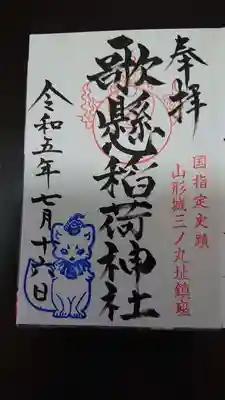 奉拝
国指定史跡
山形城三ノ丸址鎮座
歌懸稲荷神社
令和五年七月十六日